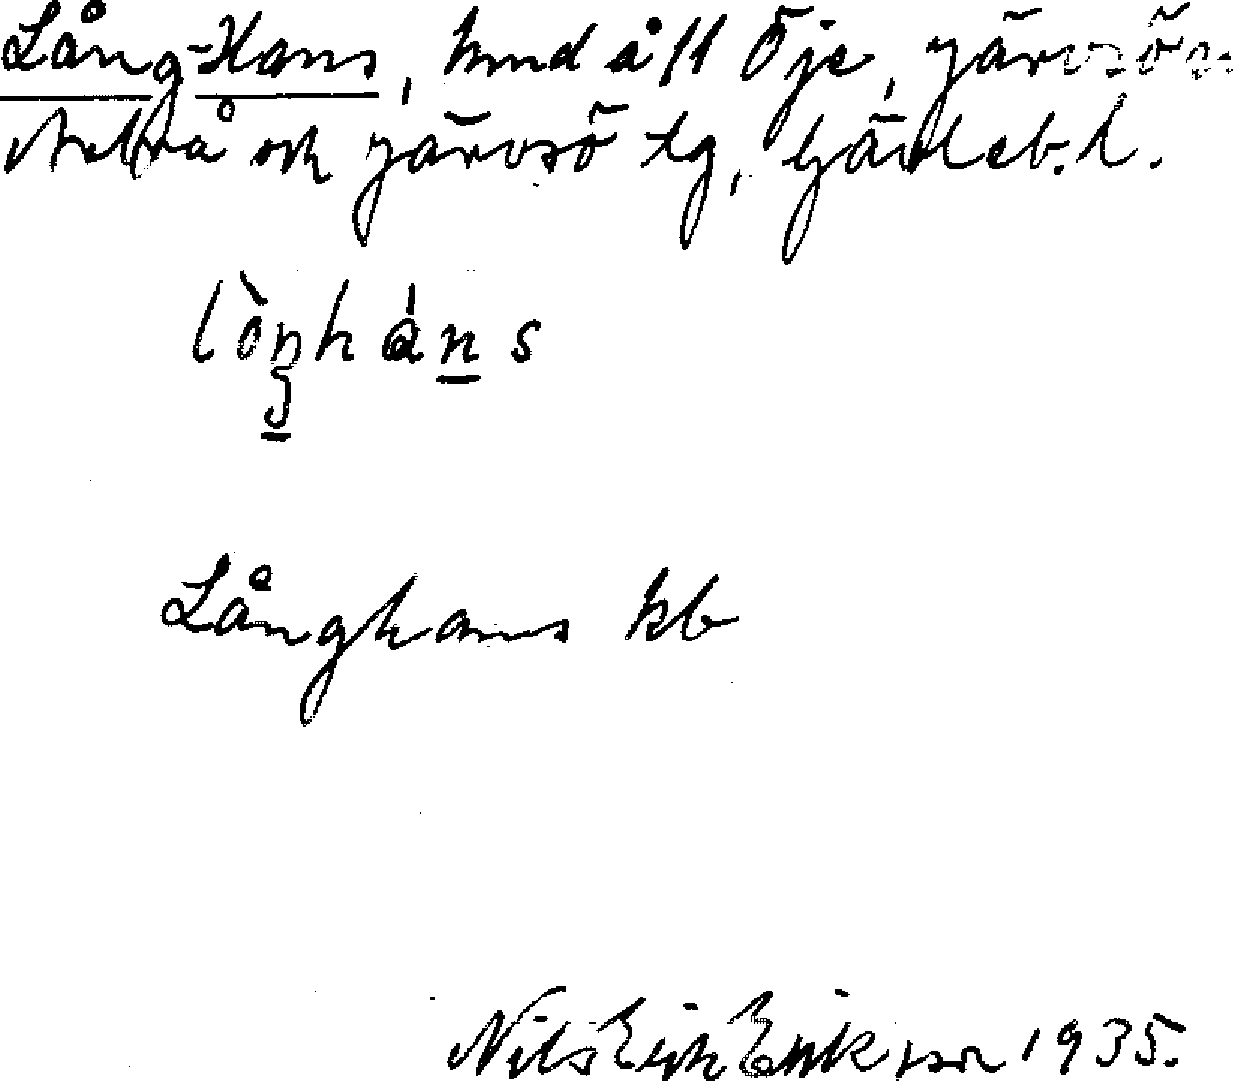 Lång-Hans, hmd å 1/1 Öje, Järvsö sn
Arbrå och Järvsö tg, Gävleb. l.
lòŋhàns
Långhans kb
Nils Erik Eriksson 1935.